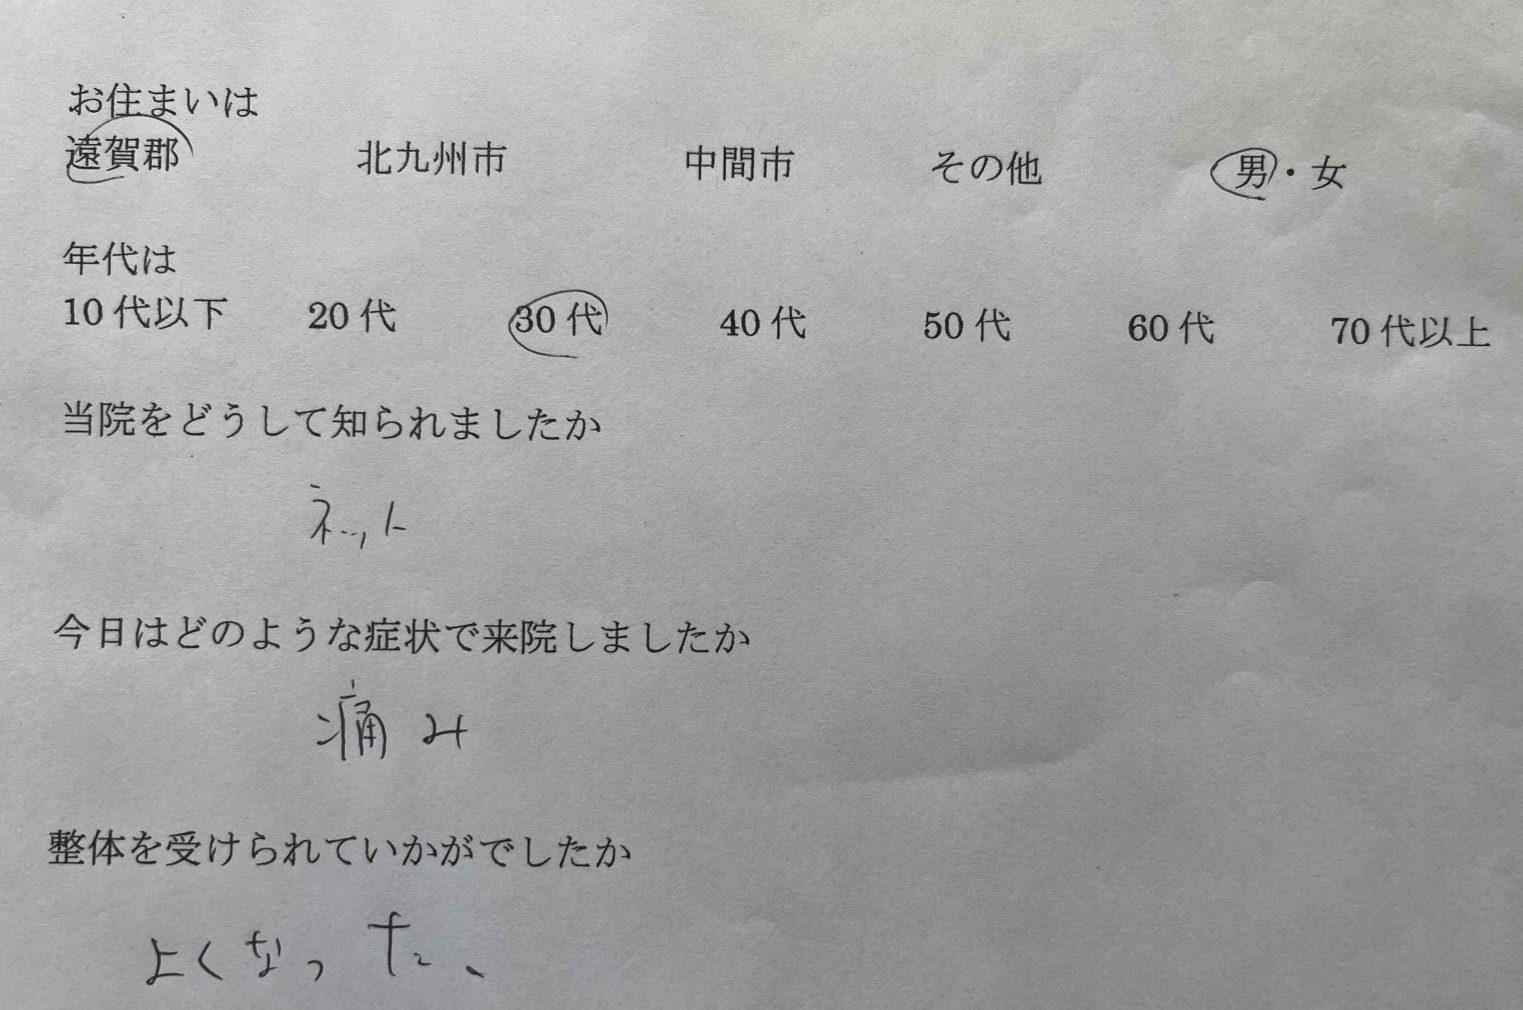 お住まいは
遠賀郡 北九州市 中間市 その他 男・女
年代は
10代以下 20代 30代 40代 50代 60代 70代以上
当院をどうして知られましたか
ネット
今日はどのような症状で来院しましたか
痛み
整体を受けられていかがでしたか
よくなった、